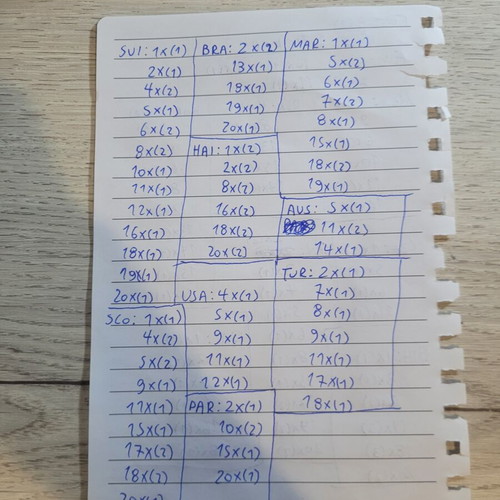 SUI: 1x(1)
2x(1)
4x(2)
5x(1)
6x(2)
8x(2)
10x(1)
11x(1)
12x(1)
16x(1)
18x(1)
19x(1)
20x(1)
SCO: 1x(1)
4x(2)
5x(2)
9x(1)
11x(1)
15x(1)
17x(2)
18x(2)
BRA: 2x(2)
13x(1)
18x(1)
19x(1)
20x(1)
HAI: 1x(2)
2x(2)
8x(2)
16x(2)
18x(2)
20x(2)
USA: 4x(1)
5x(1)
9x(1)
11x(1)
12x(1)
PAR: 2x(1)
10x(2)
15x(1)
20x(1)
MAR: 1x(1)
5x(2)
6x(1)
7x(2)
8x(1)
15x(1)
18x(2)
19x(1)
AUS: 5x(1)
11x(2)
14x(1)
TUR: 2x(1)
7x(1)
8x(1)
9x(1)
11x(1)
17x(1)
18x(1)